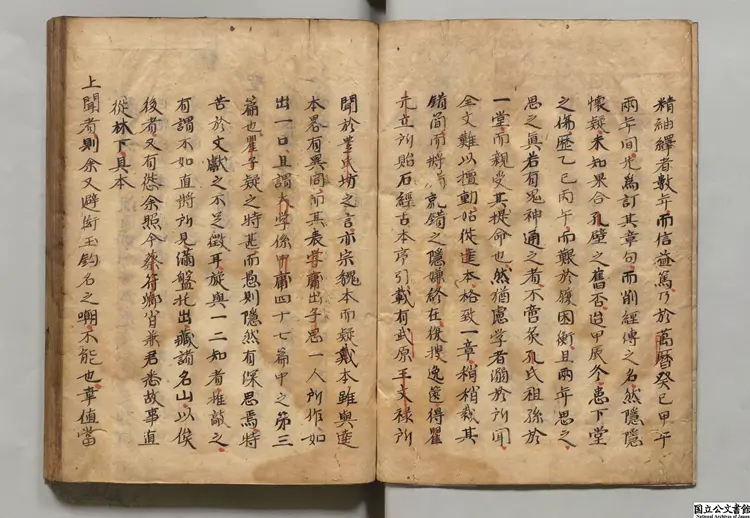 精紬繹者數年而信益篤乃於萬曆癸巳甲午
兩年間先爲訂其章句而削經傳之名然隱隱
懷疑未知果合孔壁之舊否迨甲辰冬患下堂
之傷歷乙巳丙午而艱於食困衡且兩年思之
思之眞若有鬼神通之者不啻炙孔氏祖孫於
一堂而親受其提命也然猶慮學者溺於所聞
全文難以擅動姑從進本格致一章稍稍截其
錯簡而將
元立所貽石經古本序引載有武原王文祿所
聞於羣氏坊之言亦宗魏本而疑戴本雖與進
本畧有異同而其表學庸出子思一人所作如
出一口且謂大學係中庸四十七篇中之第三
篇也瞿子疑之時甚而愚則隱然有深思焉特
苦於文獻之不足徵耳旋與一二知者推敲之
有謂不如直將所見滿盤托出藏諸名山以俟
後者又有慫余照今蔡符卿肖兼君悉故事直
從林下具本
上聞者則余又避衒玉釣名之嘲不能也幸值當
国立公文書館
National Archives of Japan